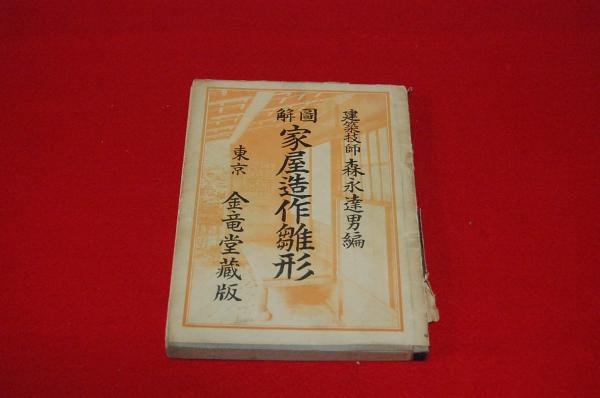 建築技師 森永達男編
圖解
家屋造作雛形
東京 金竜堂蔵版